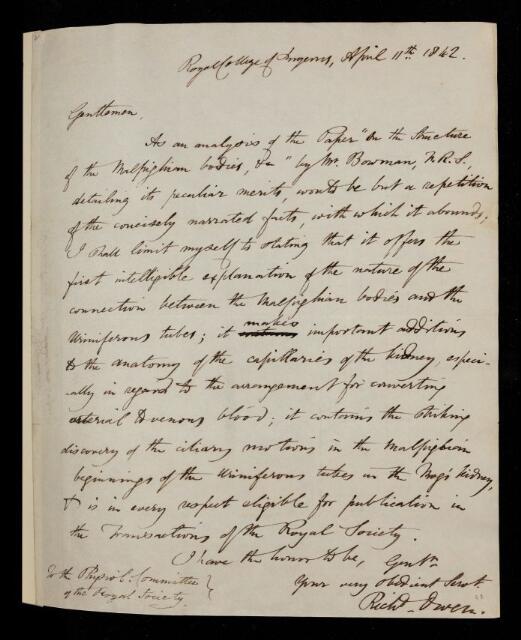 Royal College of Surgeons, April 11th 1842.
Gentlemen,
As an analysis of the Paper "On the Structure
of the Malpighian bodies, &c" by Mr. Bowman, F.R.S.,
detailing its peculiar merits, would be but a repetition
of the concisely narrated facts, with which it abounds;
I shall limit myself to stating that it offers the
first intelligible explanation of the nature of the
connection between the Malpighian bodies and the
Uriniferous tubes; it makes important additions
to the anatomy of the capillaries of the kidney, especi-
ally in regard to the arrangement for converting
arterial to venous blood; it contains the striking
discovery of the ciliary motions in the Malpighian
beginnings of the Uriniferous tubes in the Frog's kidney,
& is in every respect eligible for publication in
the Transactions of the Royal Society.
I have the honor to be, Gentn
Your very obedient Servt.
Richd. Owen.
To the Physiol. Committee
of the Royal Society